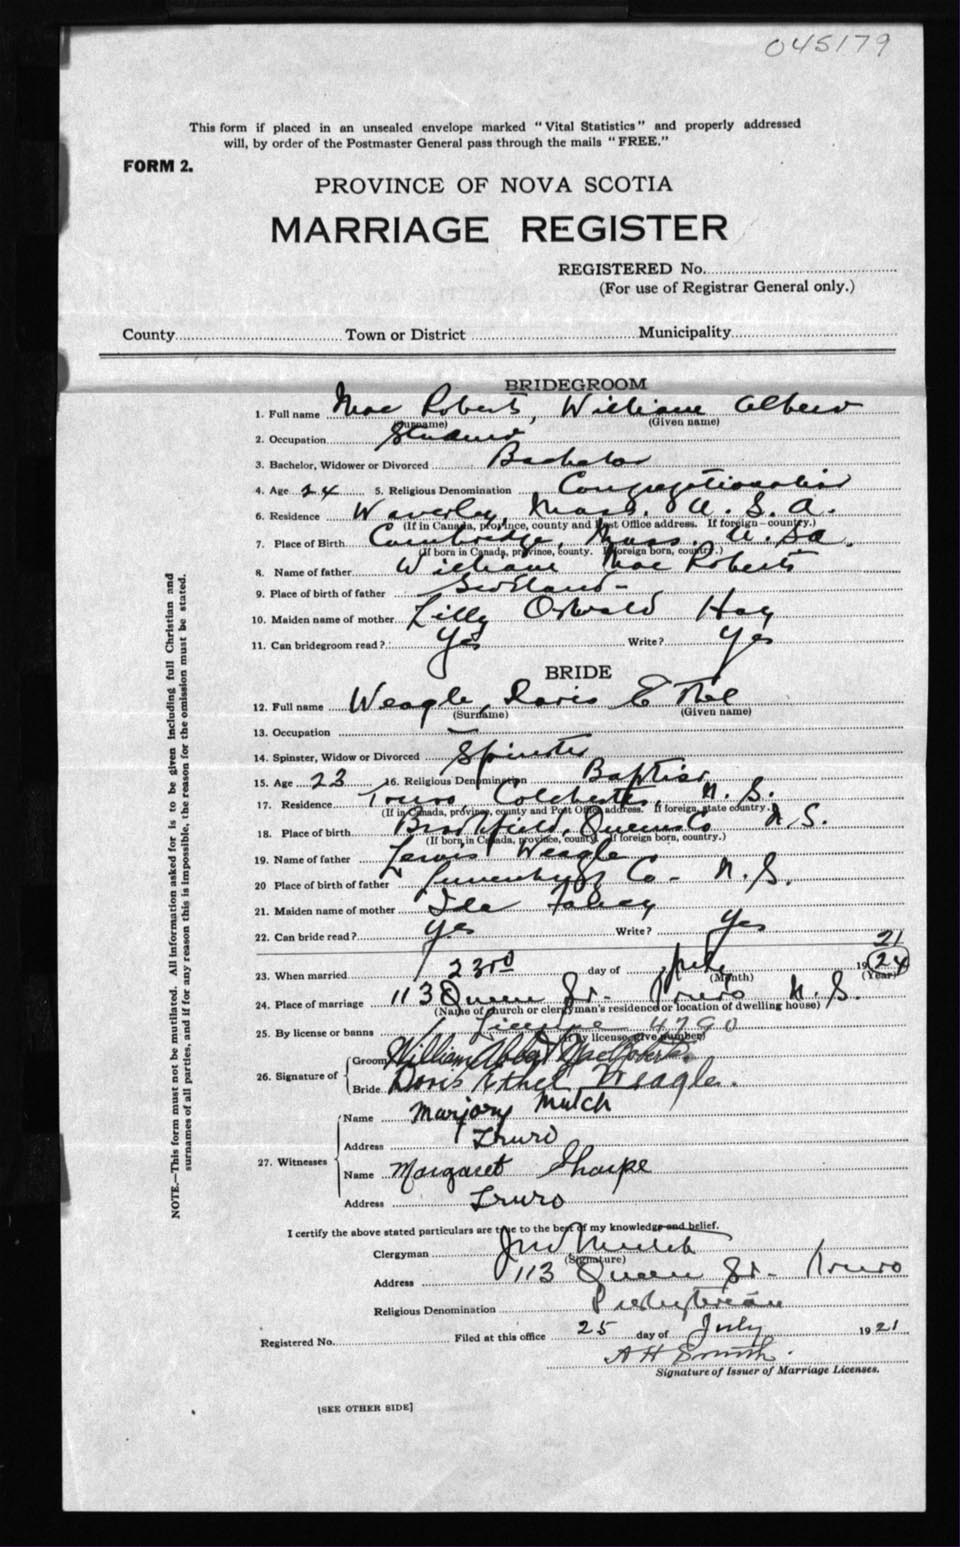 045179
This form if placed in an unsealed envelope marked "Vital Statistics" and properly addressed
will, by order of the Postmaster General pass through the mails "FREE."
FORM 2.
PROVINCE OF NOVA SCOTIA
MARRIAGE REGISTER
REGISTERED No.
(For use of Registrar General only.)
County Town or District Municipality
BRIDEGROOM
1. Full name Mac Roberts, William Albert
(Surname) (Given name)
2. Occupation Student
3. Bachelor, Widower or Divorced Bachelor
4. Age 24 5. Religious Denomination Congregationalist
6. Residence Waverley, Mass. U.S.A.
(If in Canada, province, county and Post Office address. If foreign—country.)
7. Place of Birth Cambridge, Mass. U.Sa.
(If born in Canada, province, county. If foreign born, country.)
8. Name of father William Mac Roberts
9. Place of birth of father Scotland-
10. Maiden name of mother Lilly Oswald Hay
11. Can bridegroom read? Yes Write? Yes
BRIDE
12. Full name Weagle, Doris Ethel
(Surname) (Given name)
13. Occupation —
14. Spinster, Widow or Divorced Spinster
15. Age 23 16. Religious Denomination Baptist
17. Residence Truro, Colchester, N.S.
(If in Canada, province, county and Post Office address. If foreign, state country.)
18. Place of birth Brookfield, Queens Co N.S.
(If born in Canada, province, county. If foreign born, country.)
19. Name of father Lewis Weagle
20 Place of birth of father Lunenburg Co- N.S.
21. Maiden name of mother Ida Fahey
22. Can bride read? Yes Write? Yes
21
23. When married 23rd day of July 19 24
(Month) (Year)
24. Place of marriage 113 Queen St. Truro N.S.
(Name of church or clergyman's residence or location of dwelling house)
25. By license or banns License 4790
(If by license, give number)
26. Signature of Groom William Albert MacRoberts.
Bride Doris Ethel Weagle.
27. Witnesses
Name Marjory Mutch
Address Truro
Name Margaret Sharpe
Address Truro
I certify the above stated particulars are true to the best of my knowledge and belief.
Clergyman Jno Mutch
(Signature)
Address 113 Queen St. Truro
Religious Denomination Presbyterian
Registered No. Filed at this office 25 day of July 1921
A H Smith.
Signature of Issuer of Marriage Licenses.
[SEE OTHER SIDE]
NOTE.—This form must not be mutilated. All information asked for is to be given including full Christian and
surnames of all parties, and if for any reason this is impossible, the reason for the omission must be stated.